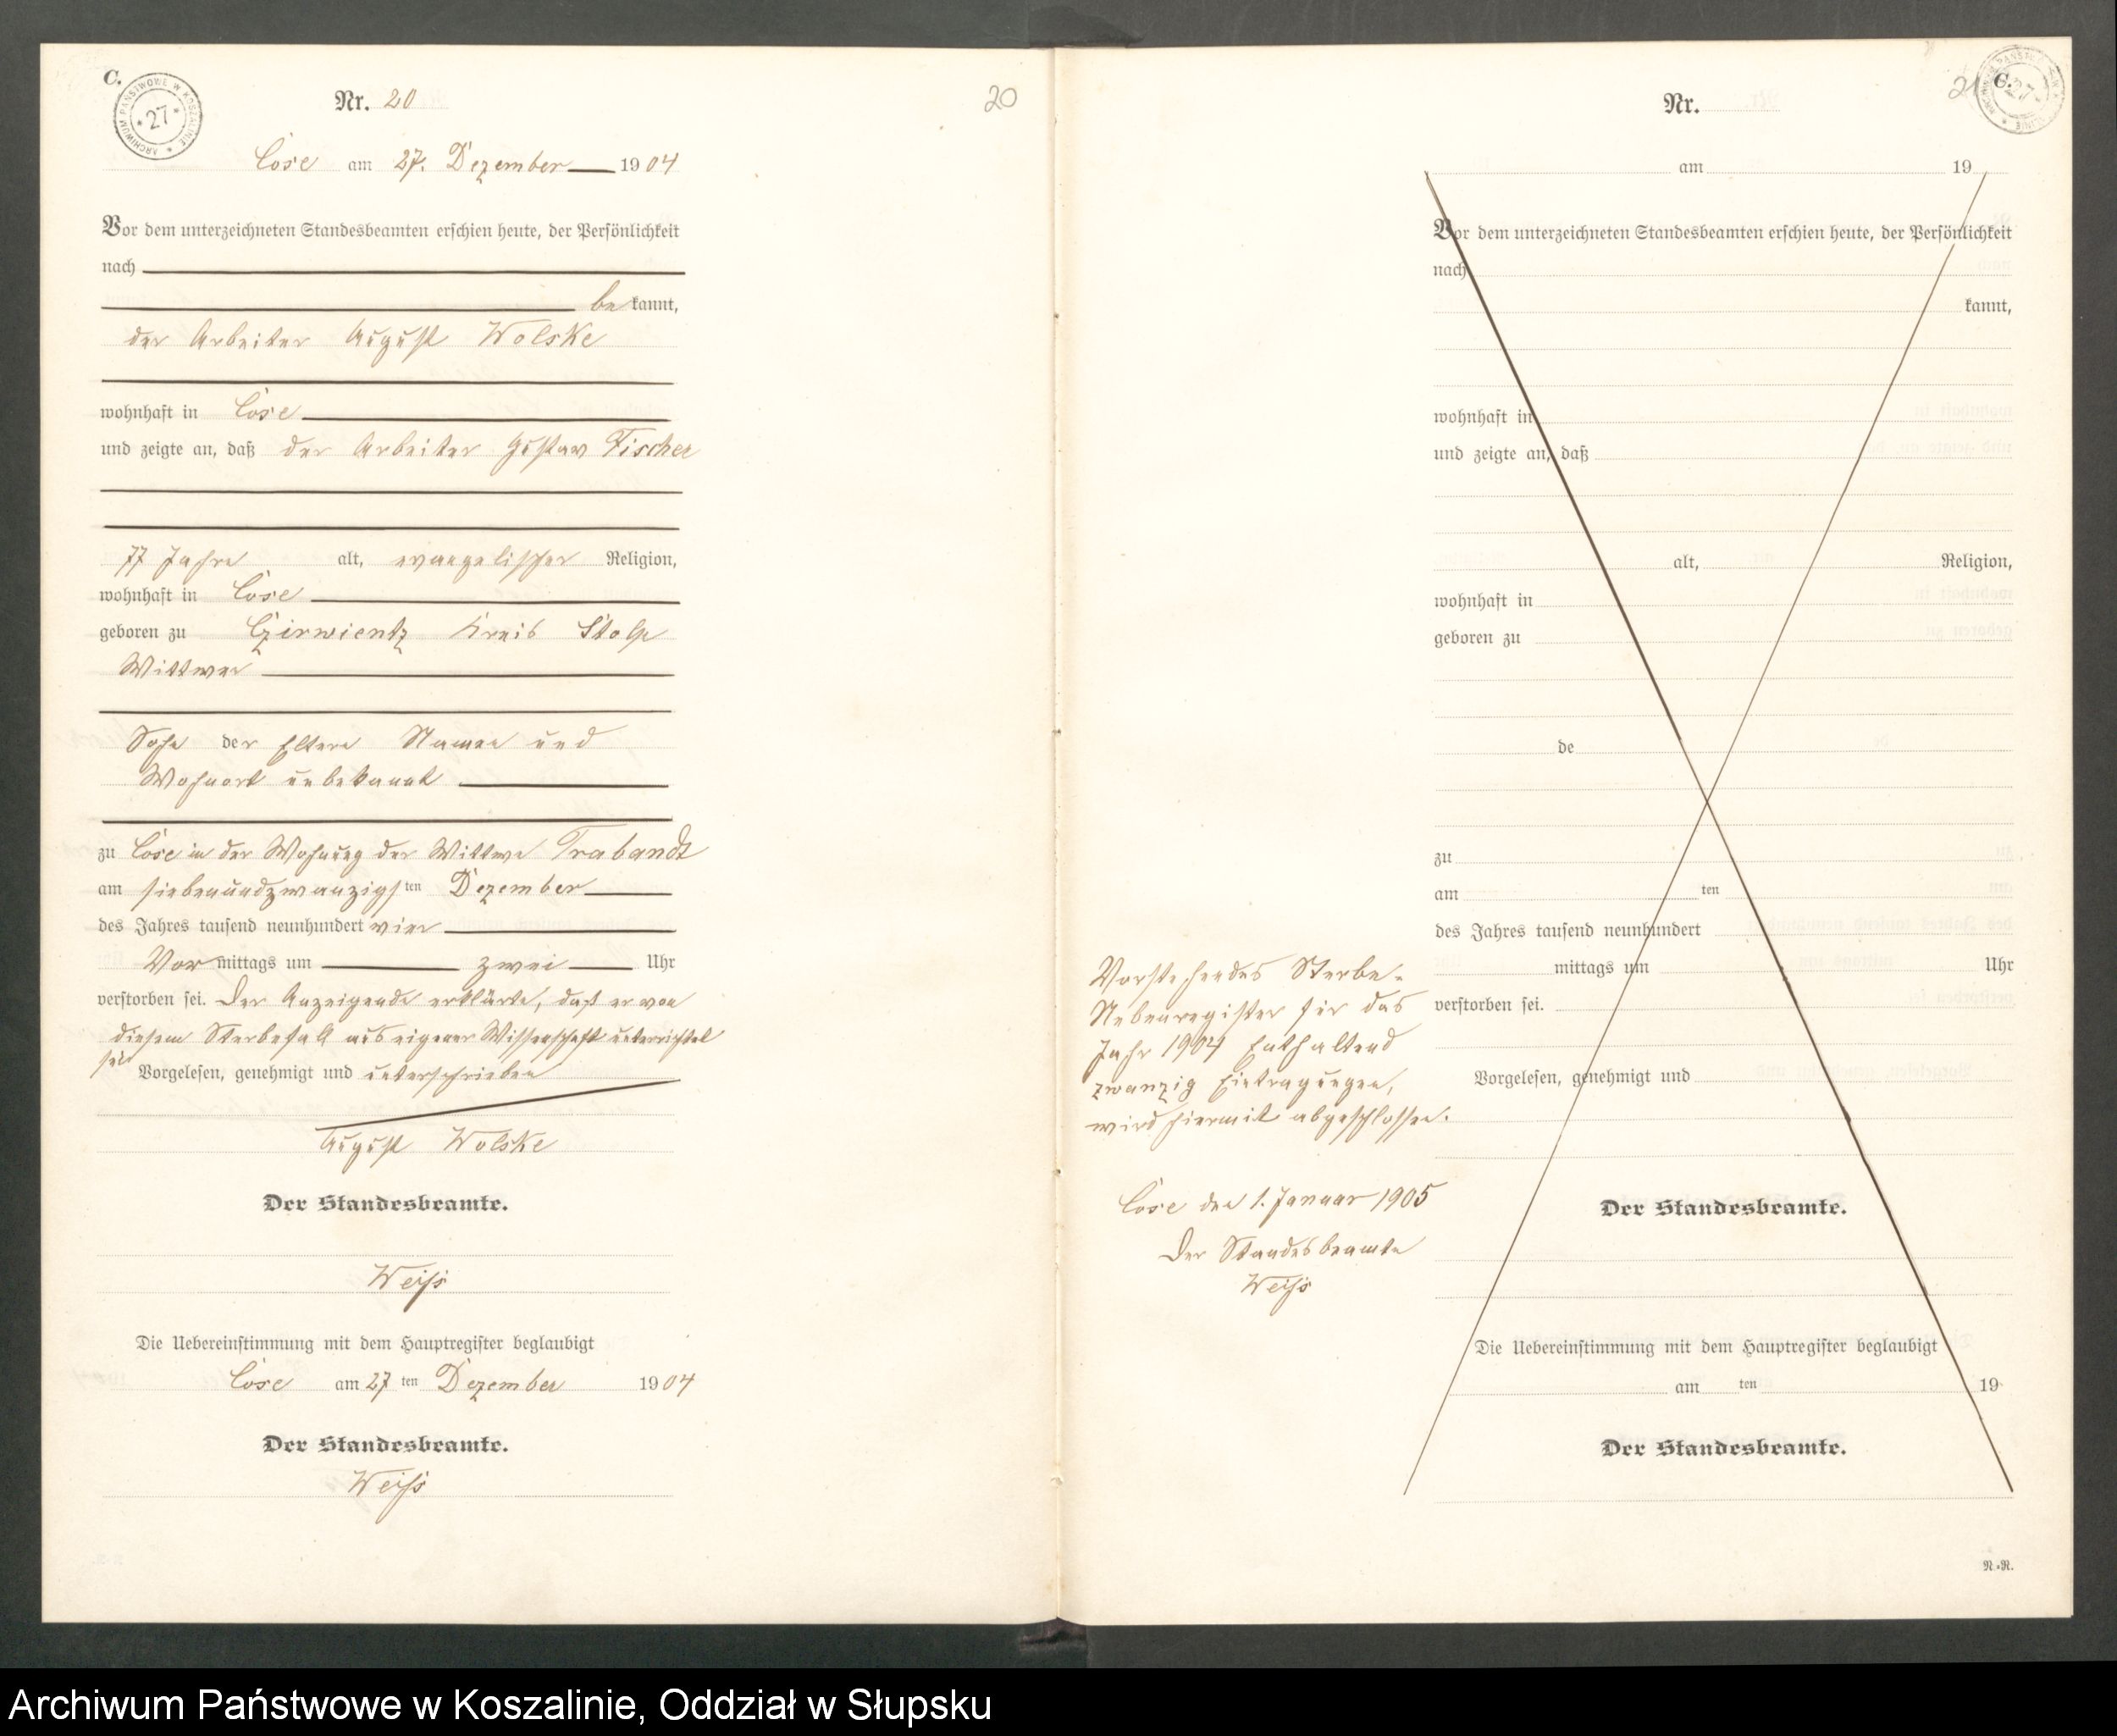 C.
ARCHIWUM PAŃSTWOWE W KOSZALINIE
* 27 *
Nr. 20
20
Lose am 27. Dezember 1904
Vor dem unterzeichneten Standesbeamten erschien heute, der Persönlichkeit
nach
bekannt,
der Arbeiter August Wolske
wohnhaft in Lose
und zeigte an, daß der Arbeiter Gustav Fischer
77 Jahre alt, evangelischer Religion,
wohnhaft in Lose
geboren zu Czirwientz Kreis Stolp
Wittwer
Sohn der Eltern Namen und
Wohnort unbekannt
zu Lose in der Wohnung der Wittwe Trabandt
am siebenundzwanzigsten Dezember
des Jahres tausend neunhundert vier
Vormittags um zwei Uhr
verstorben sei. Der Anzeigende erklärte, daß er von
diesem Sterbefall aus eigener Wissenschaft unterrichtet
sei.
Vorgelesen, genehmigt und unterschrieben
August Wolske
Der Standesbeamte.
Weiß
Die Uebereinstimmung mit dem Hauptregister beglaubigt
Lose am 27 ten Dezember 1904
Der Standesbeamte.
Weiß
21
C.
Nr.
am 19
Vor dem unterzeichneten Standesbeamten erschien heute, der Persönlichkeit
nach
kannt,
wohnhaft in
und zeigte an, daß
alt, Religion,
wohnhaft in
geboren zu
de
zu
am ten
des Jahres tausend neunhundert
mittags um Uhr
verstorben sei.
Vorgelesen, genehmigt und
Vorstehendes Sterbe-
Nebenregister für das
Jahr 1904 Enthaltend
zwanzig Eintragungen,
wird hiermit abgeschlossen.
Lose den 1. Januar 1905
Der Standesbeamte
Weiß
Der Standesbeamte.
Die Uebereinstimmung mit dem Hauptregister beglaubigt
am ten 19
Der Standesbeamte.
N.-R.
Archiwum Państwowe w Koszalinie, Oddział w Słupsku